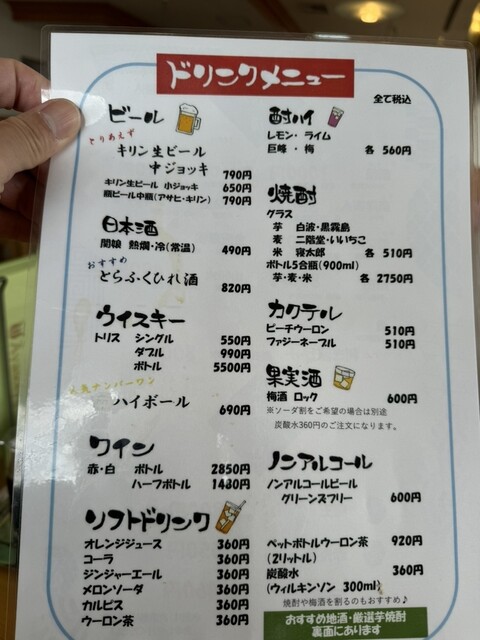 ドリンクメニュー
全て税込
ビール
とりあえず
キリン生ビール
中ジョッキ 790円
キリン生ビール 小ジョッキ 650円
瓶ビール中瓶(アサヒ・キリン) 790円
日本酒
関娘 熱燗・冷(常温) 490円
おすすめ
とらふくひれ酒
820円
ウイスキー
トリス シングル 550円
ダブル 990円
ボトル 5500円
人気ナンバーワン
ハイボール 690円
ワイン
赤・白 ボトル 2850円
ハーフボトル 1480円
ソフトドリンク
オレンジジュース 360円
コーラ 360円
ジンジャーエール 360円
メロンソーダ 360円
カルピス 360円
ウーロン茶 360円
酎ハイ
レモン・ライム
巨峰・梅 各 560円
焼酎
グラス
芋 白波・黒霧島
麦 二階堂・いいちこ
米 寝太郎 各 510円
ボトル5合瓶(900ml)
芋・麦・米 各 2750円
カクテル
ピーチウーロン 510円
ファジーネーブル 510円
果実酒
梅酒 ロック 600円
※ソーダ割をご希望の場合は別途
炭酸水360円のご注文になります。
ノンアルコール
ノンアルコールビール
グリーンズフリー 600円
ペットボトルウーロン茶 920円
(2リットル)
炭酸水 360円
(ウィルキンソン 300ml)
焼酎や梅酒を割るのもおすすめ♪
おすすめ地酒・厳選芋焼酎
裏面にあります